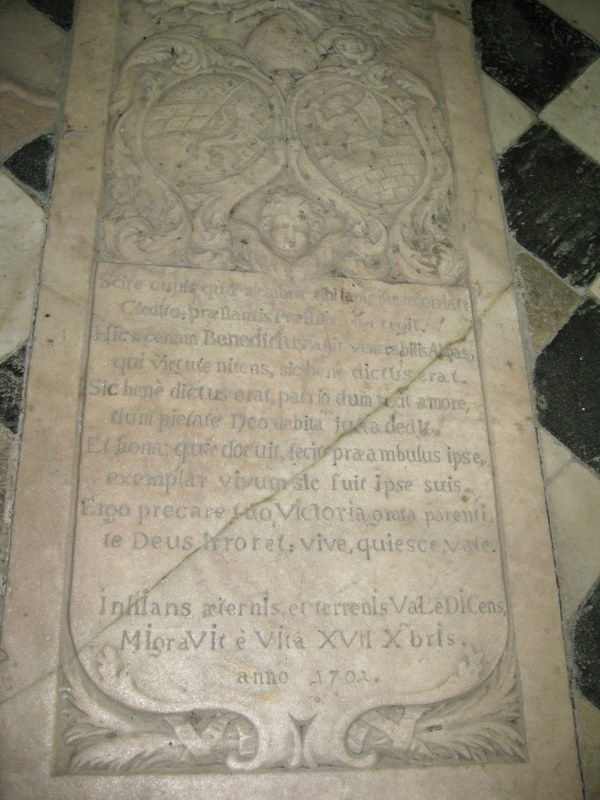 Scire cupis quæ membra
Credito, præstantis
Hic æternùm Benedictus venerabilis Abbas,
qui virtute nitens, sic benè dictus erat.
Sic benè dictus erat, patrio dum rexit amore,
dum pietate Deo debita jura dedit.
Et bona, quæ docuit, fecit præambulus ipse,
exemplar vivum sic fuit ipse suis.
Ergo precare tuo, Victoria grata parenti,
te Deus irroret, vive, quiesce, vale.
InhIans æternIs, et terrenIs VaLeDICens,
MIgraVIt è VIta XVII Xbris.
anno 1701.